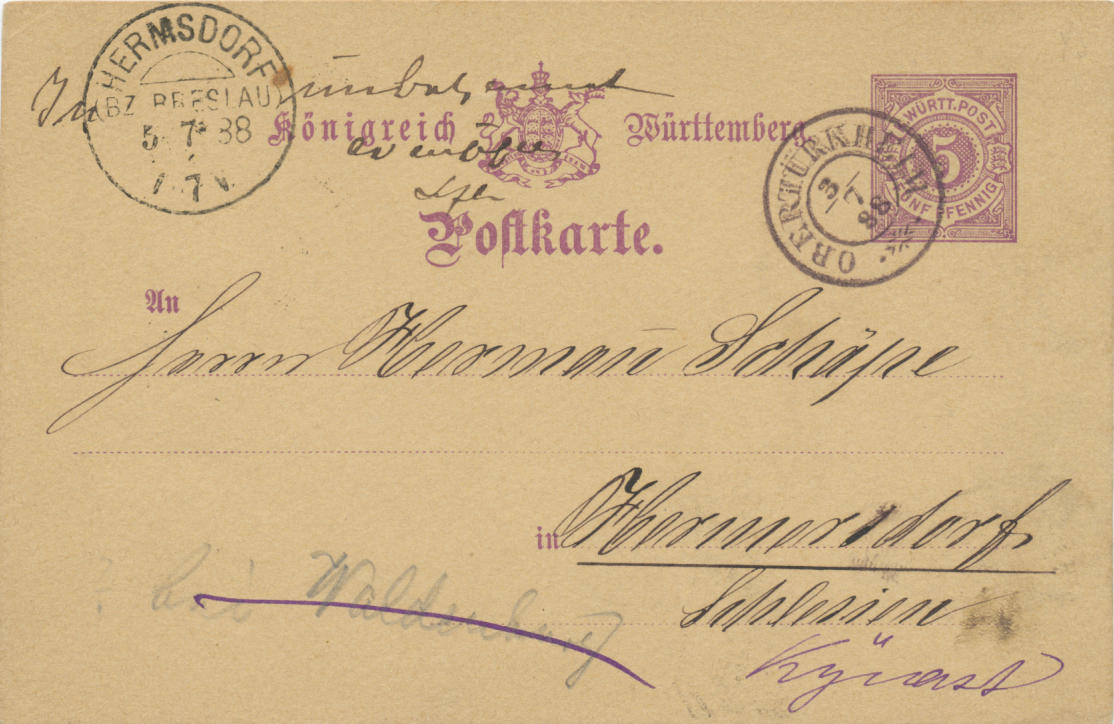 HERMSDORF
(BZ. BRESLAU)
5. 7. 88
7 V.
In unbekannt
Königreich Württemberg.
WÜRTT. POST
5
FÜNF PFENNIG
OBERTÜRKHEIM
3/7 88
Postkarte.
An
Herrn Herman̄ Schäpe
in Hermersdorf
Schlesien
? bei Waldenburg
Kÿnast